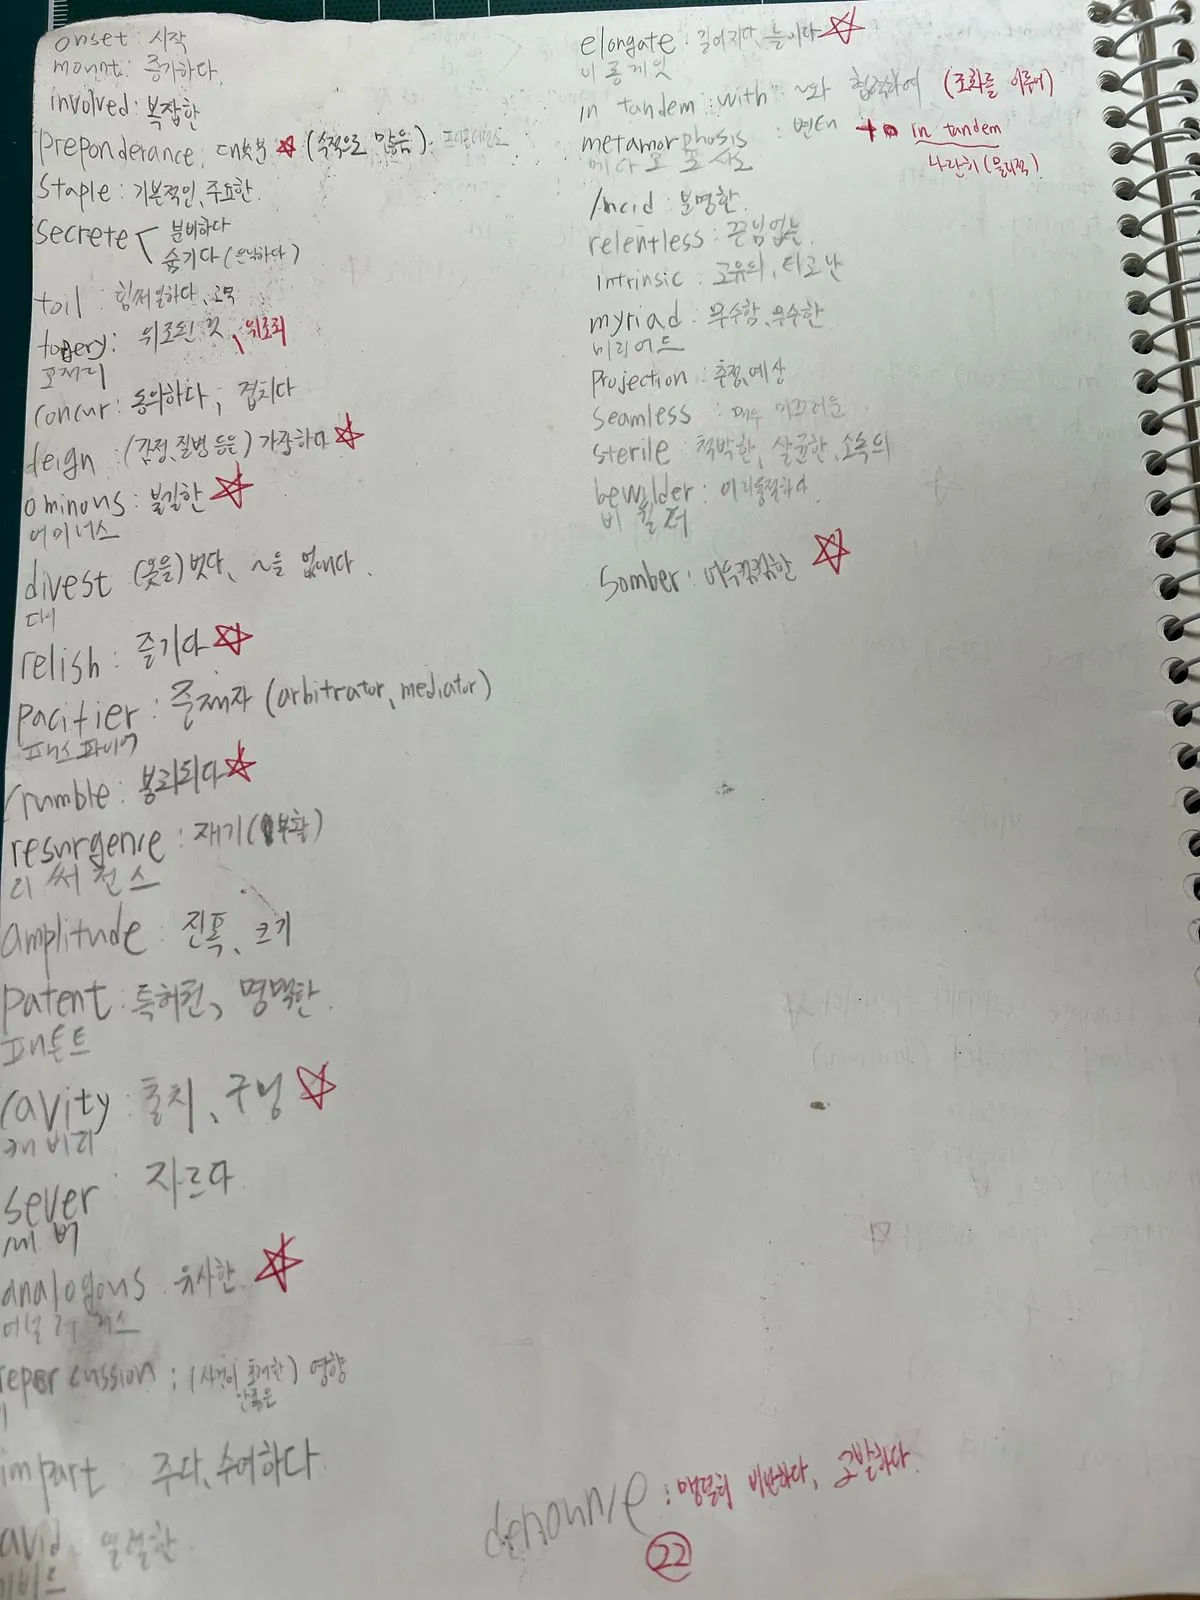 onset : 시작
mount : 증가하다.
involved : 복잡한
preponderance : 대부분 ☆ (수적으로 많음).
staple : 기본적인, 주요한.
secrete < 분비하다
숨기다 (은닉하다)
toil : 힘써일하다, 고역
: 위조된 것, 위조죄
concur : 동의하다 ; 겹치다
feign : (감정, 질병 등을) 가장하다 ☆
ominous : 불길한 ☆
어미너스
divest (옷을) 벗다, ~을 없애다.
다이
relish : 즐기다 ☆
pacifier : 중재자 (arbitrator, mediator)
패스파이어
crumble : 붕괴되다 ☆
resurgence : 재기 (부활)
리써전스
amplitude : 진폭, 크기
patent : 특허권, 명백한.
패튼트
cavity : 충치, 구멍 ☆
캐비티
sever : 자르다
쎄버
analogous 유사한. ☆
어널러거스
repercussion : (사건이 초래한) 영향
안좋은
impart 주다, 수여하다.
avid 열렬한
elongate : 길어지다, 늘이다 ☆
in tandem with : ~와 협력하여 (조화를 이루어)
metamorphosis : 변태 in tandem
나란히 (물리적)
lucid : 분명한.
relentless : 끈임없는
intrinsic : 고유의, 타고난
myriad : 무수함, 무수한
미리어드
projection : 추정, 예상
seamless : 매우 매끄러운
sterile : 척박한, 살균한, 소독의
bewilder : 어리둥절하다
비윌더
somber : 어두컴컴한 ☆
denounce : 맹렬히 비난하다, 고발하다.
22